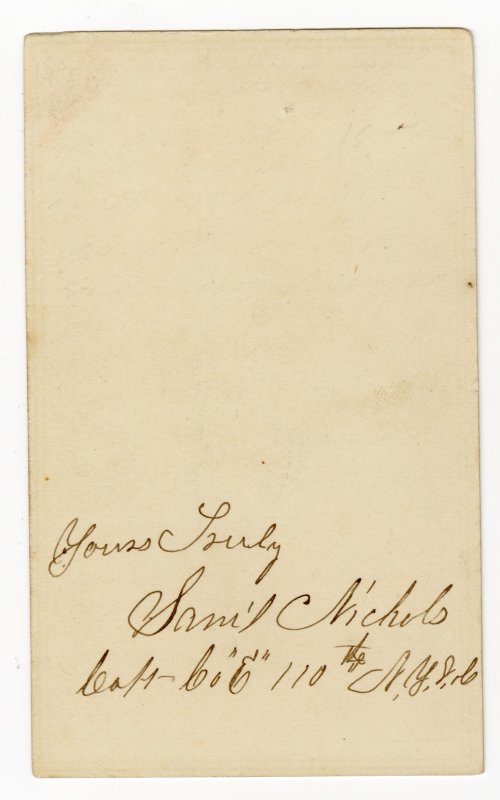 Yours Truly
Sam'l Nichols
Capt Co "E" 110th N.Y.